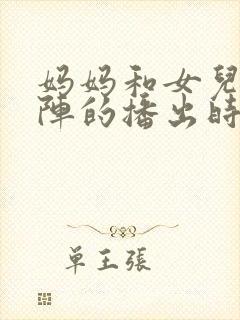 妈妈和女兒
陣的播出時
单王張